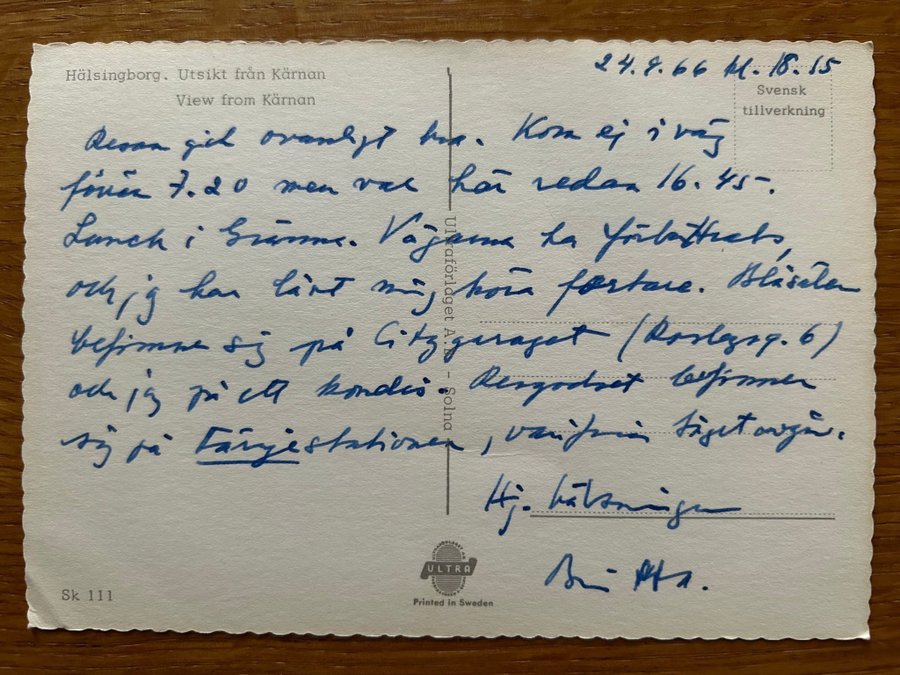 Hälsingborg. Utsikt från Kärnan
View from Kärnan
24.9.66 kl. 18.15
Svensk
tillverkning
Resan gick ovanligt bra. Kom ej i väg
förrän 7.20 men var här redan 16.45.
Lunch i Gränna. Vägarna ha förbättrats,
och jag har lärt mig köra fortare. Blåsålen
befinner sig på Citygaraget (6)
och jag på ett kondis. Resgodset befinner
sig på Färjestationen, varifrån tåget avgår.
Hj. hälsningar
Britta.
Ultraförlaget A.B. - Solna
Sk 111
ULTRA
Printed in Sweden